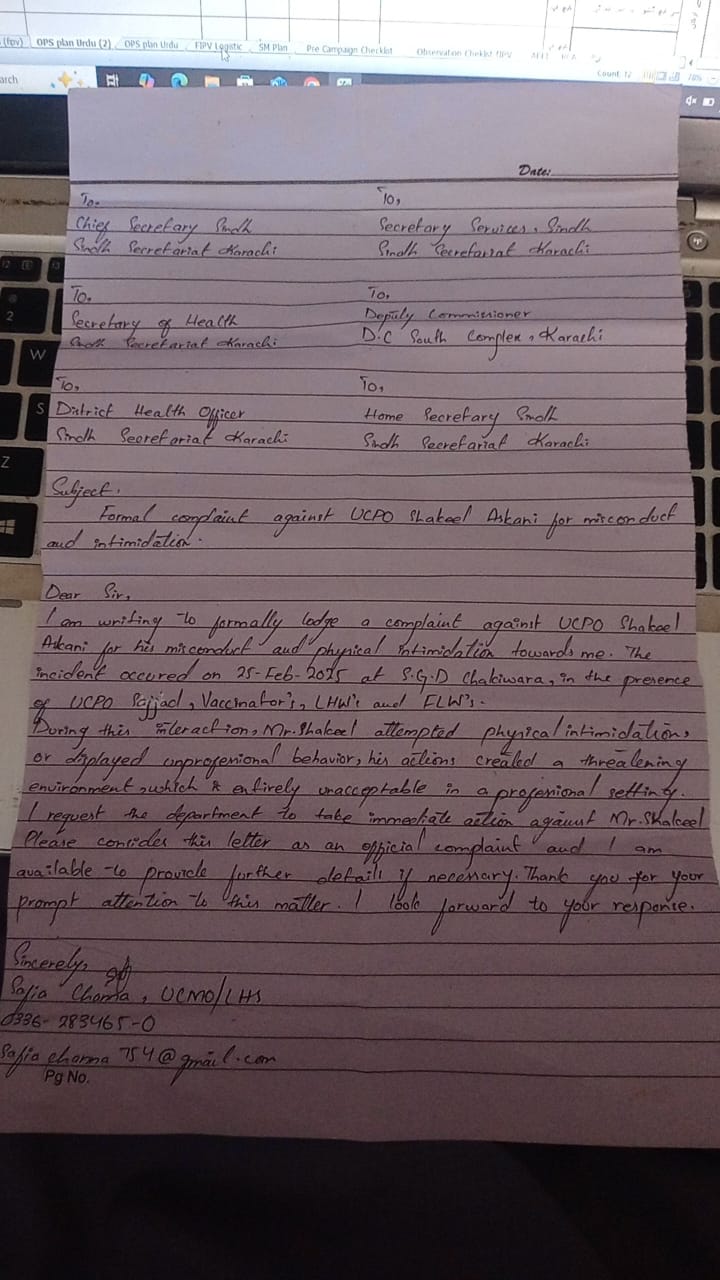 (fipv) OPS plan Urdu (2) OPS plan Urdu FIPV Logistic SM Plan Pre Campaign Checklist Observation Cheklist fIPV
arch
Count: 12 78%
Date:
To.
Chief Secretary Sindh
Sindh Secretariat Karachi
To,
Secretary Services, Sindh
Sindh Secretariat Karachi
To,
Secretary of Health
Sindh Secretariat Karachi
To,
Deputy Commissioner
D.C South Complex, Karachi
To,
District Health Officer
Sindh Secretariat Karachi
To,
Home Secretary Sindh
Sindh Secretariat Karachi
Subject,
Formal complaint against UCPO Shakeel Askani for misconduct
and intimidation.
Dear Sir,
I am writing to formally lodge a complaint against UCPO Shakeel
Askani for his misconduct and physical intimidation towards me. The
incident occured on 25-Feb-2025 at S.G.D Chakiwara, in the presence
of UCPO Sajjad, Vaccinator's, LHW's and FLW's.
During this interaction, Mr. Shakeel attempted physical intimidation,
or displayed unprofessional behavior, his actions created a threatening
environment, which is entirely unacceptable in a professional setting.
I request the department to take immediate action against Mr. Shakeel
Please consider this letter as an official complaint and I am
available to provide further details if necessary. Thank you for your
prompt attention to this matter. I look forward to your response.
Sincerely,
Safia Channa, UCMO/LHS
0336-283465-0
Safia channa 754@gmail.com
Pg No.